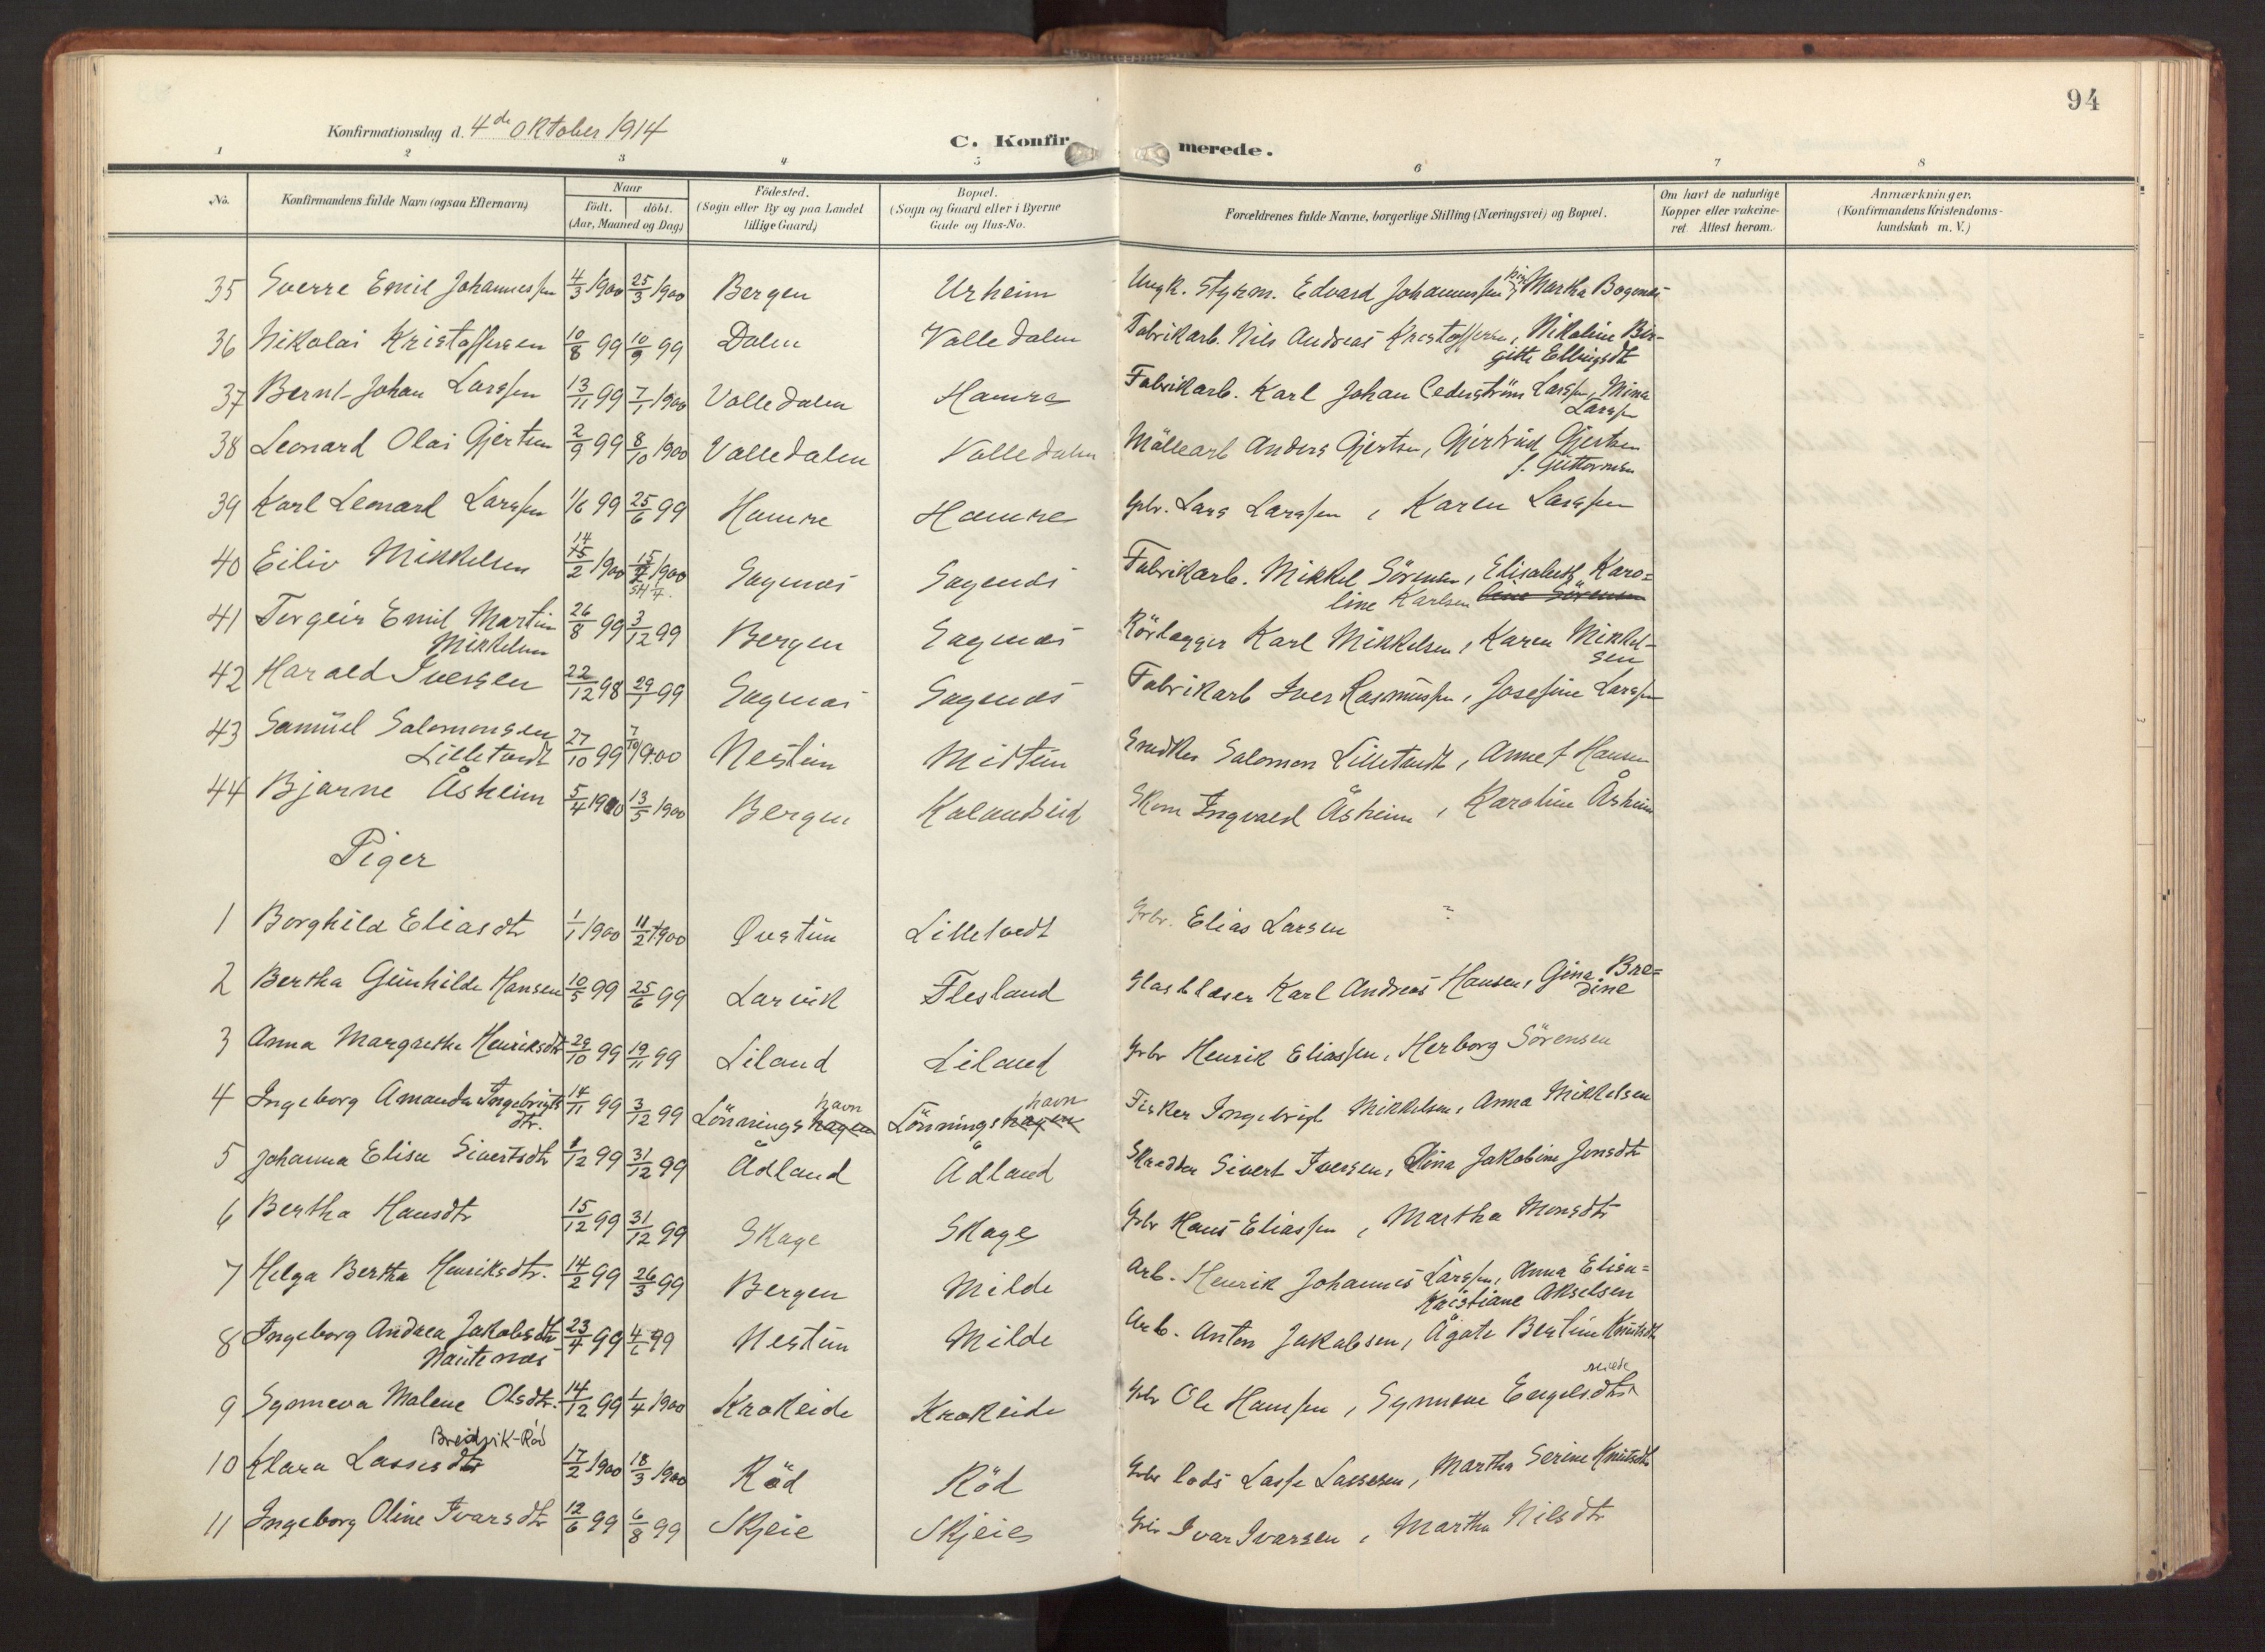 94
Konfirmationsdag d. 4de Oktober 1914
C. Konfirmerede.
1 2 3 4 5 6 7 8
No. Konfirmandens fulde Navn (ogsaa Efternavn) Naar født. døbt. (Aar, Maaned og Dag) Fødested. (Sogn eller By og paa Landet tillige Gaard) Bopæl. (Sogn og Gaard eller i Byerne Gade og Hus-No. Forældrenes fulde Navne, borgerlige Stilling (Næringsvei) og Bopæl. Om havt de naturlige Kopper eller vakcineret. Attest herom. Anmærkninger. (Konfirmandens Kristendomskundskab m. V.)
35 Sverre Emil Johannessen 4/3 1900 25/3 1900 Bergen Urheim Ungk. Styrm. Edvard Johannessen, pige Marka Bogenæs
36 Nikolai Kristoffersen 10/8 99 10/9 99 Dalen Valledalen Fabrikarb. Nils Andreas Kristoffersen, Nikoline Bir-
gitte Ellingsdt
37 Bernt Johan Larssen 13/11 99 7/1 1900 Valledalen Hamre Fabrikarb. Karl Johan Cederström Larssen, Mina
Larssen
38 Leonard Olai Gjertsen 2/9 99 8/10 1900 Valledalen Valledalen Möllearb Anders Gjertsen, Gjertrud Gjertsen
f. Guttormsen
39 Karl Leonard Larssen 1/6 99 25/6 99 Hamre Hamre Grbr. Lars Larssen, Karen Larssen
40 Eiliv Mikkelsen 14 15/2 1900 15/7 1900 Sagenæs Sagenæs Fabrikarb. Mikkel Sörensen, Elisabeth Karo=
line Karlsen line Sörensen
41 Torgeir Emil Martin 26/8 99 3/12 99 Bergen Sagenæs Rörlægger Karl Mikkelsen, Karen Mikkel-
Mikkelsen sen
42 Harald Iversen 22/12 98 29/1 99 Sagenæs Sagenæs Fabrikarb Iver Rasmussen, Josefine Larssen
43 Samuel Salomonsen
Lilletvedt 27/10 99 7/10 1900 Nestun Midtun Snedker Salomon Lilletvedt, Anne f Hansen
44 Bjarne Åsheim 5/4 1900 13/5 1900 Bergen Kalandseid Skom Ingvald Åsheim, Karoline Åsheim
Piger
1 Borghild Eliasdtr 1/1 1900 11/2 1900 Øvstun Lilletvedt Grbr. Elias Larsen ?
2 Bertha Gunhilde Hansen 10/5 99 25/6 99 Larvik Flesland Glasblæser Karl Andreas Hansen, Gina Bre=
dine
3 Anna Margrethe Henriksdtr 29/10 99 19/11 99 Liland Liland Grbr Henrik Eliassen, Herborg Sörensen
4 Ingeborg Amanda Ingebrigts
dtr. 14/11 99 3/12 99 Lönningshagen havn Lönningshagen havn Fisker Ingebrigt Mikkelsen, Anna Mikkelsen
5 Johanna Elisa Sivertsdtr 1/12 99 31/12 99 Ådland Ådland Skrædder Sivert Iversen, Elina Jakobine Jensdtr
6 Bertha Hansdtr 15/12 99 31/12 99 Skage Skage Grbr Hans Eliassen, Martha Monsdtr
7 Helga Bertha Henriksdtr. 14/2 99 26/3 99 Bergen Milde Arb. Henrik Johannes Larssen, Anna Elisa=
Kristiane Akselsen
8 Ingeborg Andrea Jakobsdtr 23/4 99 4/6 99 Nestun Milde Arb. Anton Jakobsen, Ågate Bertine Knutsdtr
Nautenæs
9 Synneva Malene Olsdtr. 14/12 99 1/4 1900 Krokeide Krokeide Grbr Ole Hanssen, Synnove Engelsdtr
Breidvik-Rød
10 Klara Lassesdtr 17/2 1900 18/3 1900 Röd Röd Grbr Lods Lasse Lassesen, Martha Serine Knutsdtr
11 Ingeborg Oline Ivarsdtr 12/6 99 6/8 99 Skjeie Skjeie Grbr Ivar Ivarsen, Martha Nilsdtr